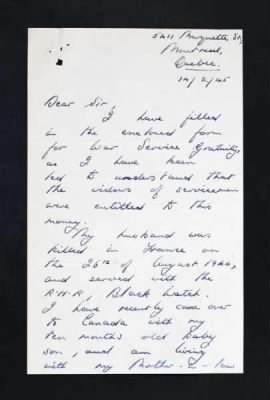 5211 Marquette St,
Montreal,
Quebec.
14/2/45
Dear Sir,
I have filled
in the enclosed form
for War Service Gratuity
as I have been
led to understand that
the widows of servicemen
were entitled to this
money.
My husband was
killed in France on
the 25th of August 1944,
and served with the
R.H.R, Black Watch.
I have recently come over
to Canada with my
ten months old baby
son, and am living
with my Mother-in-law